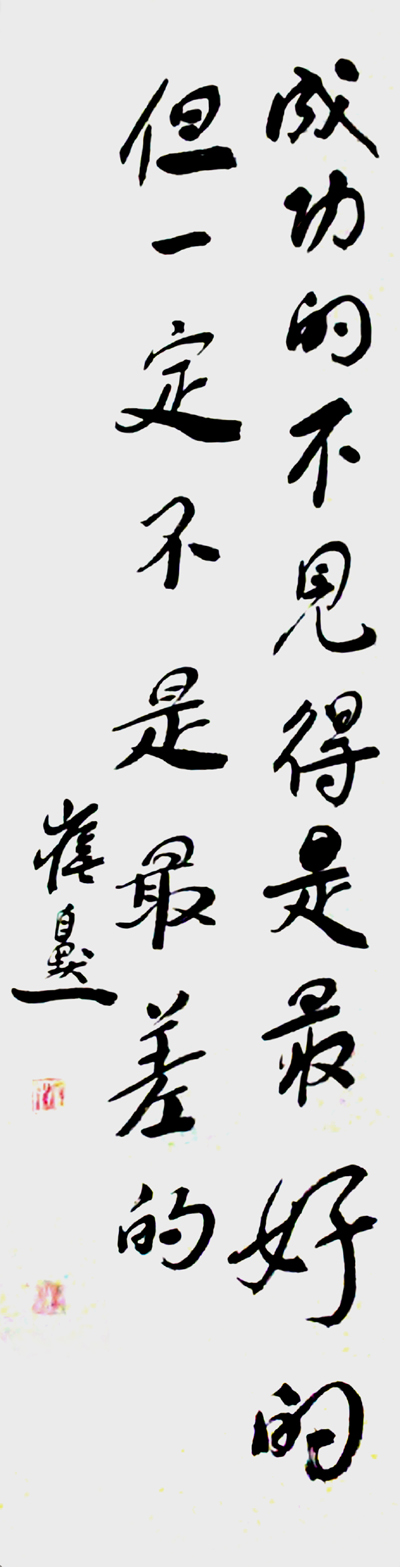 成功的不见得是最好的
但一定不是最差的